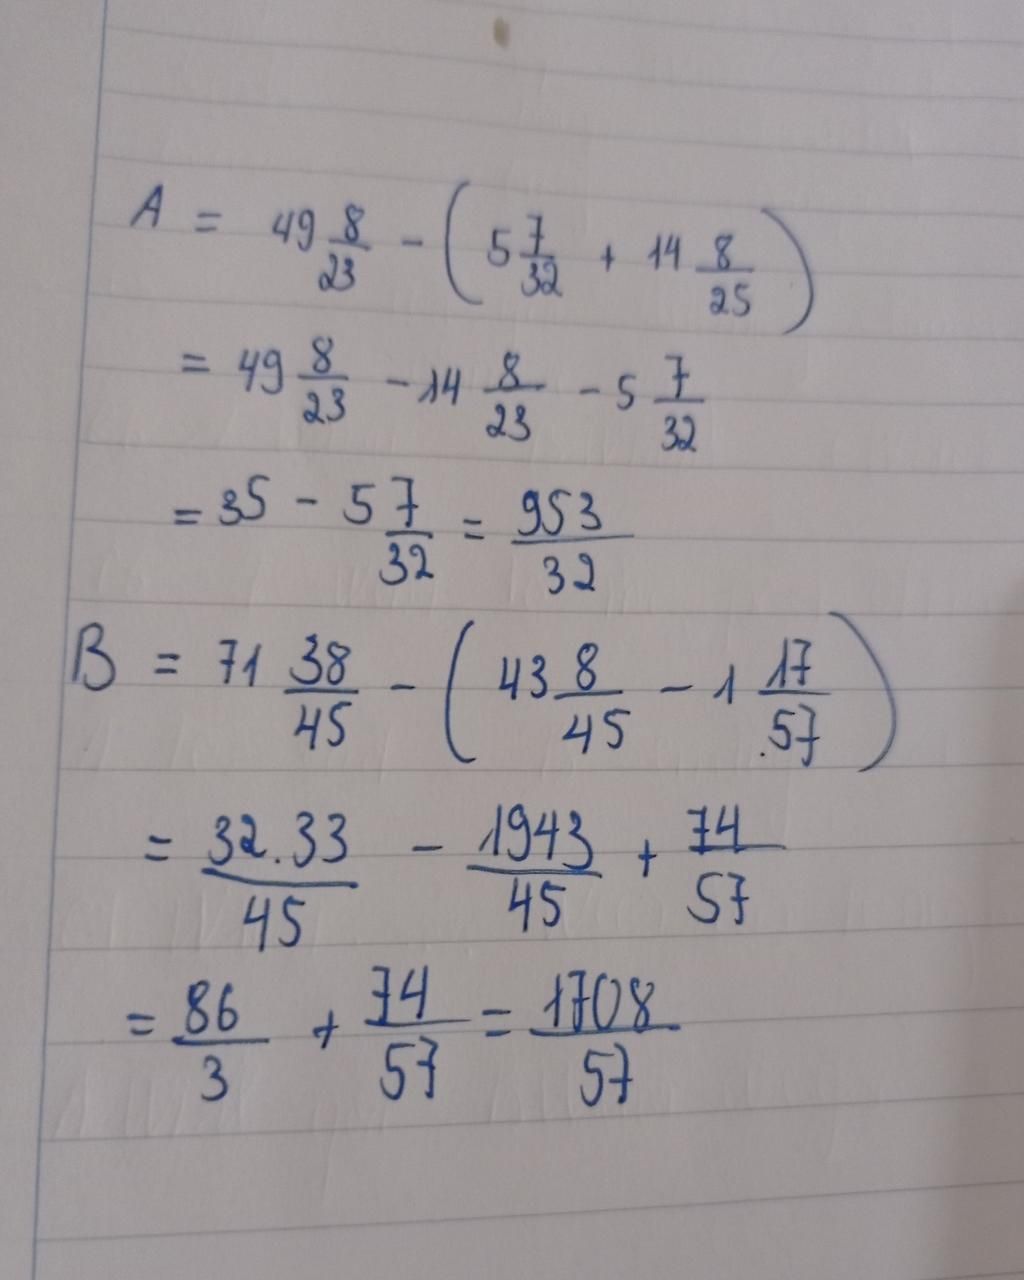 A = 49 8/23 - (5 7/32 + 14 8/25)
= 49 8/23 - 14 8/23 - 5 7/32
= 35 - 5 7/32 = 953/32
B = 71 38/45 - (43 8/45 - 1 17/57)
= 32.33/45 - 1943/45 + 74/57
= 86/3 + 74/57 = 1708/57